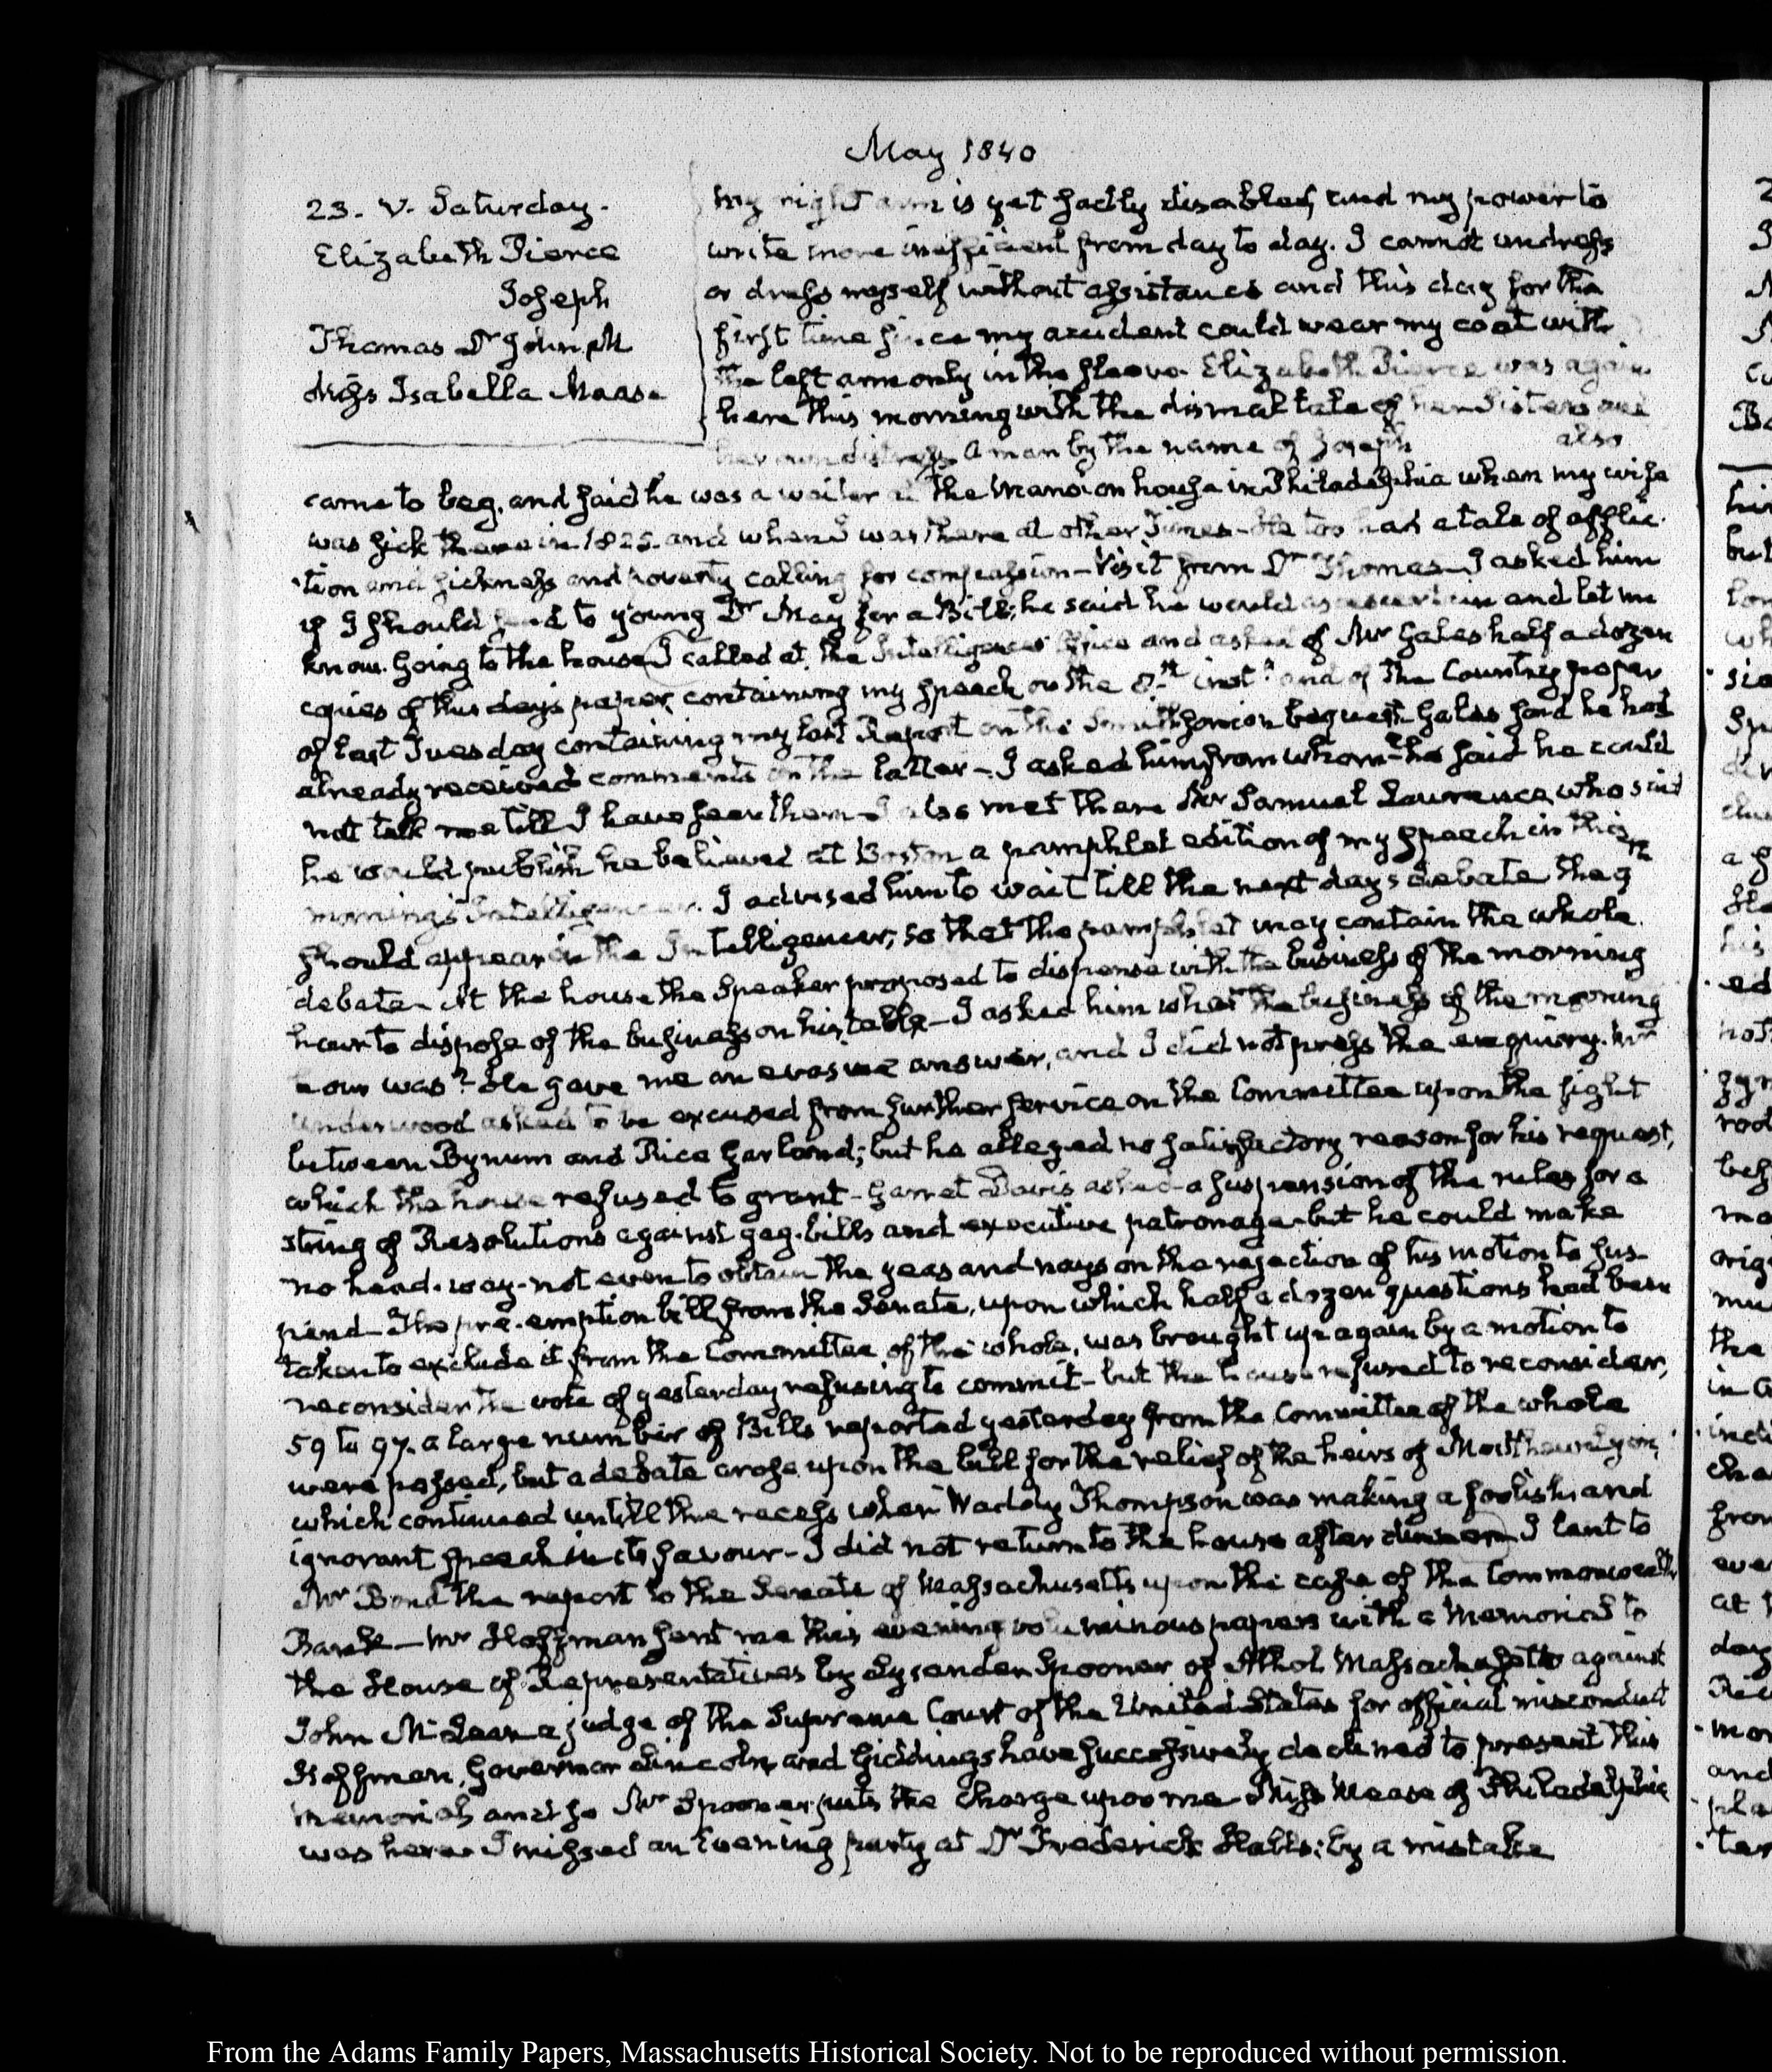 May 1840
23. V. Saturday.
Elizabeth Pierce
Joseph
Thomas Dr John M
Miss Isabella Mease
My right arm is yet sadly disabled, and my power to
write more inefficient from day to day. I cannot undress
or dress myself without assistance and this day for the
first time since my accident could wear my coat with
the left arm only in the sleeve. Elizabeth Pierce was again
here this morning with the dismal tale of her Sisters and
her own distress. A man by the name of Joseph also
came to beg, and said he was a waiter at the Mansion house in Philadelphia when my wife
was sick there in 1825. and when I was there at other Times. He too had a tale of afflic-
tion and sickness and poverty calling for compassion— Visit from Dr Thomas— I asked him
if I should send to young Dr May for a Bill; he said he would ascertain and let me
know. Going to the house I called at the Intelligencer Office and asked of Mr Gales half a dozen
copies of this day's paper, containing my speech on the 8th. inst. and of the Country paper
of last Tuesday containing my last Report on the Smithsonian bequest. Gales said he had
already received comments on the latter— I asked him from whom— he said he could
not tell me till I have seen them— I also met there Mr Samuel Lawrence, who said
he would publish he believed at Boston a pamphlet edition of my speech in this
morning's Intelligencer. I advised him to wait till the next days debate the 9th
should appear in the Intelligencer, so that the pamphlet may contain the whole
debate— At the house the Speaker proposed to dispense with the business of the morning
hour to dispose of the business on his table— I asked him what the business of the morning
hour was? He gave me an evasive answer, and I did not press the enquiry. Mr
Underwood asked to be excused from further service on the Committee upon the fight
between Bynum and Rice Garland; but he alleged no satisfactory reason for his request,
which the house refused to grant— Garret Davis asked a suspension of the rules for a
string of Resolutions against gag-bills and executive patronage— but he could make
no head-way— not even to obtain the yeas and nays on the rejection of his motion to sus-
pend— The pre-emption bill from the Senate, upon which half a dozen questions had been
taken to exclude it from the Committee of the whole, was brought up again by a motion to
reconsider the vote of yesterday refusing to commit— but the house refused to reconsider,
59 to 97. a large number of Bills reported yesterday from the Committee of the whole
were passed, but a debate arose upon the bill for the relief of the heirs of Matthew Lyon,
which continued until the recess when Waddy Thompson was making a foolish and
ignorant speech in its favour— I did not return to the house after dinner I lent to
Mr Bond the report to the Senate of Massachusetts upon the case of the Commonwealth
Bank— Mr Hoffman sent me this evening voluminous papers with a Memorial to
the House of Representatives by Lysander Spooner of Athol Massachusetts against
John McLean a judge of the Supreme Court of the United States for official misconduct
Hoffman, Governor Lincoln and Giddings have successively declined to present this
memorial, and so Mr Spooner puts the charge upon me— Miss Mease of Philadelphia
was here. I missed an Evening party at Dr Frederick Hall's: by a mistake
From the Adams Family Papers, Massachusetts Historical Society. Not to be reproduced without permission.